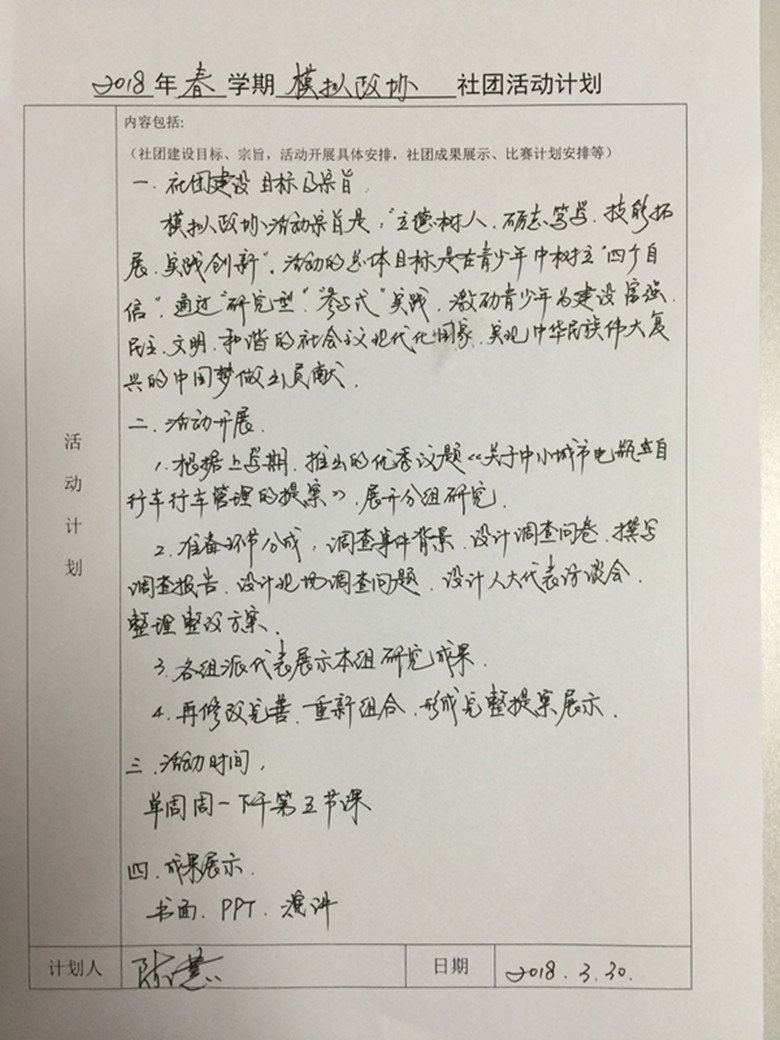 2018年春学期 模拟政协 社团活动计划
内容包括:
（社团建设目标、宗旨，活动开展具体安排，社团成果展示、比赛计划安排等）
一.社团建设目标及宗旨.
模拟政协活动宗旨是:"立德树人、砺志笃学、技能拓
展、实践创新"。活动的总体目标是在青少年中树立"四个自
信",通过"研究型""参与式"实践,激励青少年为建设富强、
民主、文明、和谐的社会主义现代化国家、实现中华民族伟大复
兴的中国梦做出贡献.
二.活动开展.
1.根据上学期.推出的优秀议题《关于中小城市电瓶自
行车行车管理的提案》,展开分组研究.
2.准备环节分成,调查事件背景.设计调查问卷.撰写
调查报告.设计现场调查问题.设计人大代表访谈会.
整理整改方案.
3.各组派代表展示本组研究成果.
4.再修改完善.重新组合.形成完整提案展示.
三.活动时间,
单周周一下午第五节课
四.成果展示.
书面.PPT.演讲
活动计划
计划人 陈慧 日期 2018.3.30.